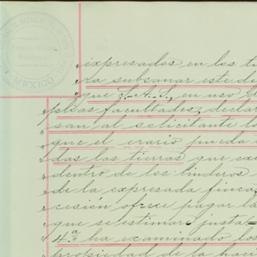 MEXICO
expresados en los t
ra subsanar este de
que S.A.S., en uso
plias facultades, declar
san al solicitante l
que el erario pueda
das las tierras que ex
dentro de los linderos
de la expresada finca,
cesión ofrece pagar la
que se estimar justa
4ª ha examinado los
propiedad de la